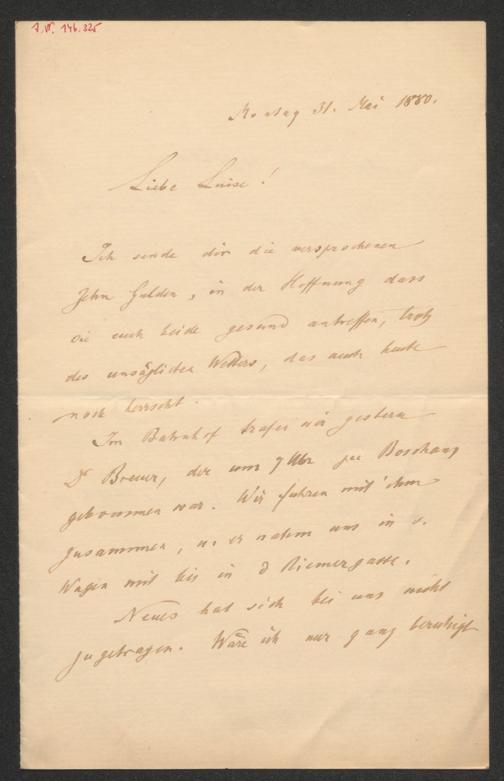 I.N. 146.325
Montag 31. Mai 1880.
Liebe Luise!
Ich sende dir die versprochenen
Zehn Gulden, in der Hoffnung dass
sie euch beide gesund antreffen, trotz
des unsäglichen Wetters, das auch heute
noch herrscht.
Im Bahnhof trafen wir gestern
Dr Breuer, der um 7 Uhr zu
gekommen war. Wir fuhren mit ihm
zusammen, u. er nahm uns in s.
Wagen mit bis in d Riemergasse.
Neues hat sich bei uns nicht
zugetragen. Wäre ich nur ganz beruhigt